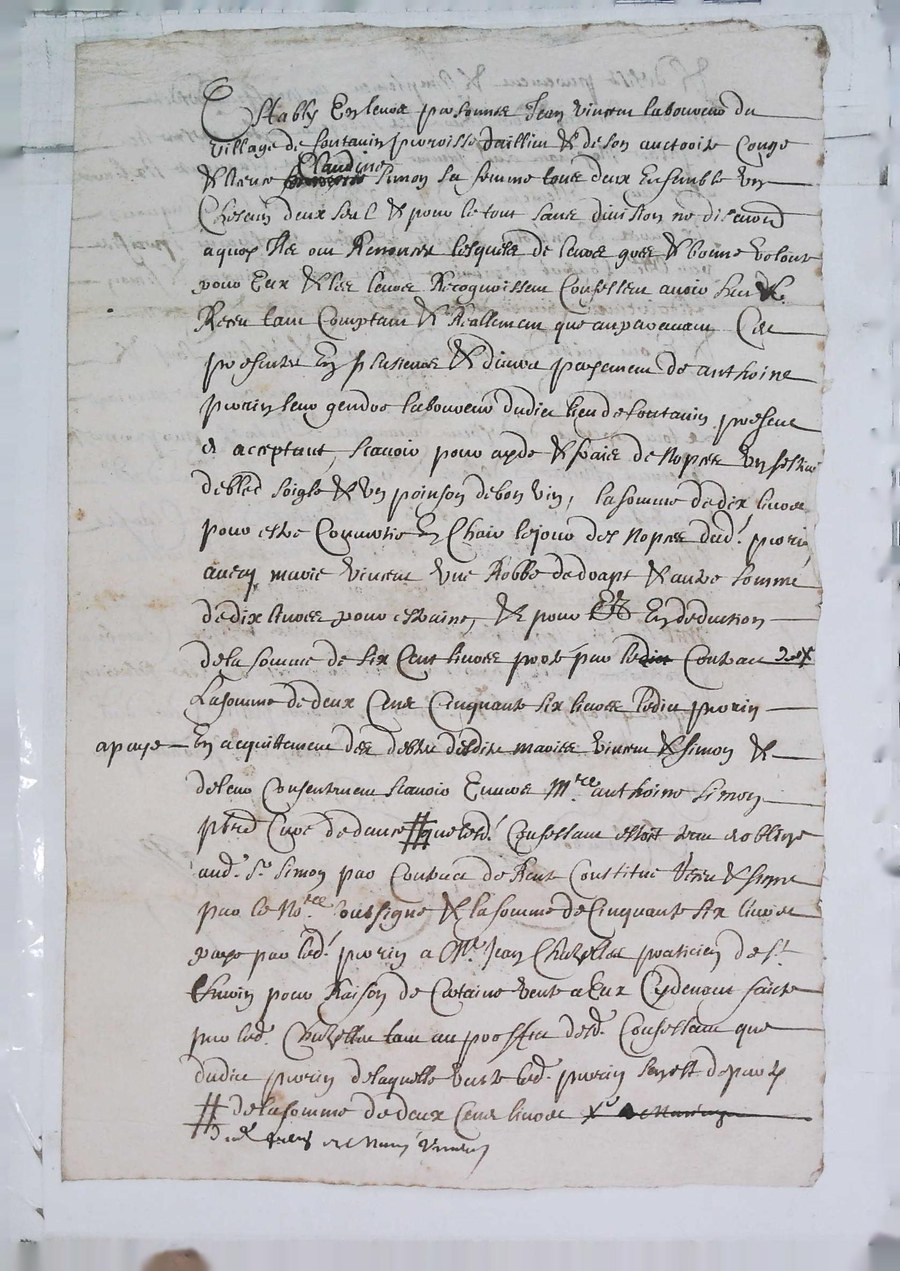 Establys En leurs personnes Jean vincent laboureur du
village de fontanin parroisse daillien & de son auctorite Conge
& licence Claudine Simon sa femme tous deux Ensemble Un
Chescun deux seul & pour le tout sans division ne discution
a quoy Ils ont Renoncer lesquels de leurs grez & bonne volonte
pour Eux & les leurs Recognoissent Confessent avoir heu &
Receu tant Comptant & Reallement que auparavant Ces
presentes En plusieurs & divers payement de anthoine
porin leur gendre laboureur dudict lieu de fontanin present
& acceptant, scavoir pour ayde & frais de nopces un sestier
de bled soigle & un poinson de bon vin, la somme de dix livres
pour estre Convertie En Chair le jour des nopces dud. porin
avecq marie vincent une Robbe de drapt & autre somme
de dix livres pour estraine, & pour En deduction
de la somme de six Cent livres porté par ledict Contract
La somme de deux Cens Cinquante six livres ledict porin
a paye En acquittement des debtes desdits mariez vincent & simon &
de leur Consentement scavoir Envers Mre anthoine Simon
pbre Cure de dance # que lesd. Confessant estoit tenu & oblige
aud. Sr Simon par Contract de Rente Constitue Receu & signe
par le Nore soussigne & la somme de Cinquante six livres
paye par led. porin a Mre Jean praticien de St
pour Raison de Certaine vente a Eux Cydevant faicte
par led. tant au proffict desd. Confessant que
dudict porin de laquelle vente led. porin sen est departy
# de la somme de deux Cens livres